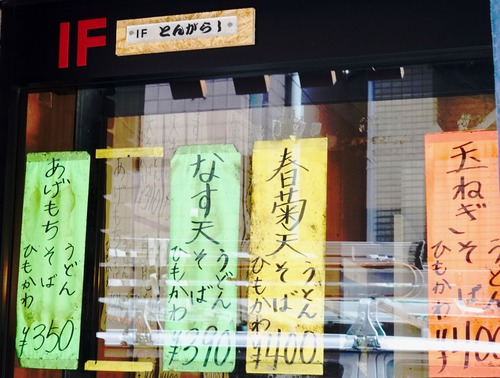 IF
IF とんがらし
あげもち
うどん
そば
ひもかわ
¥350
なす天
うどん
そば
ひもかわ
¥390
春菊天
うどん
そば
ひもかわ
¥400
玉ねぎ
そば
ひもかわ